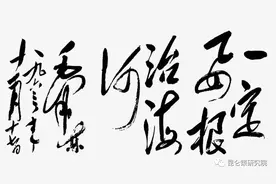 一定
要根
治海
河
毛泽东
一九六三年
十一月十七日
昆仑策研究院